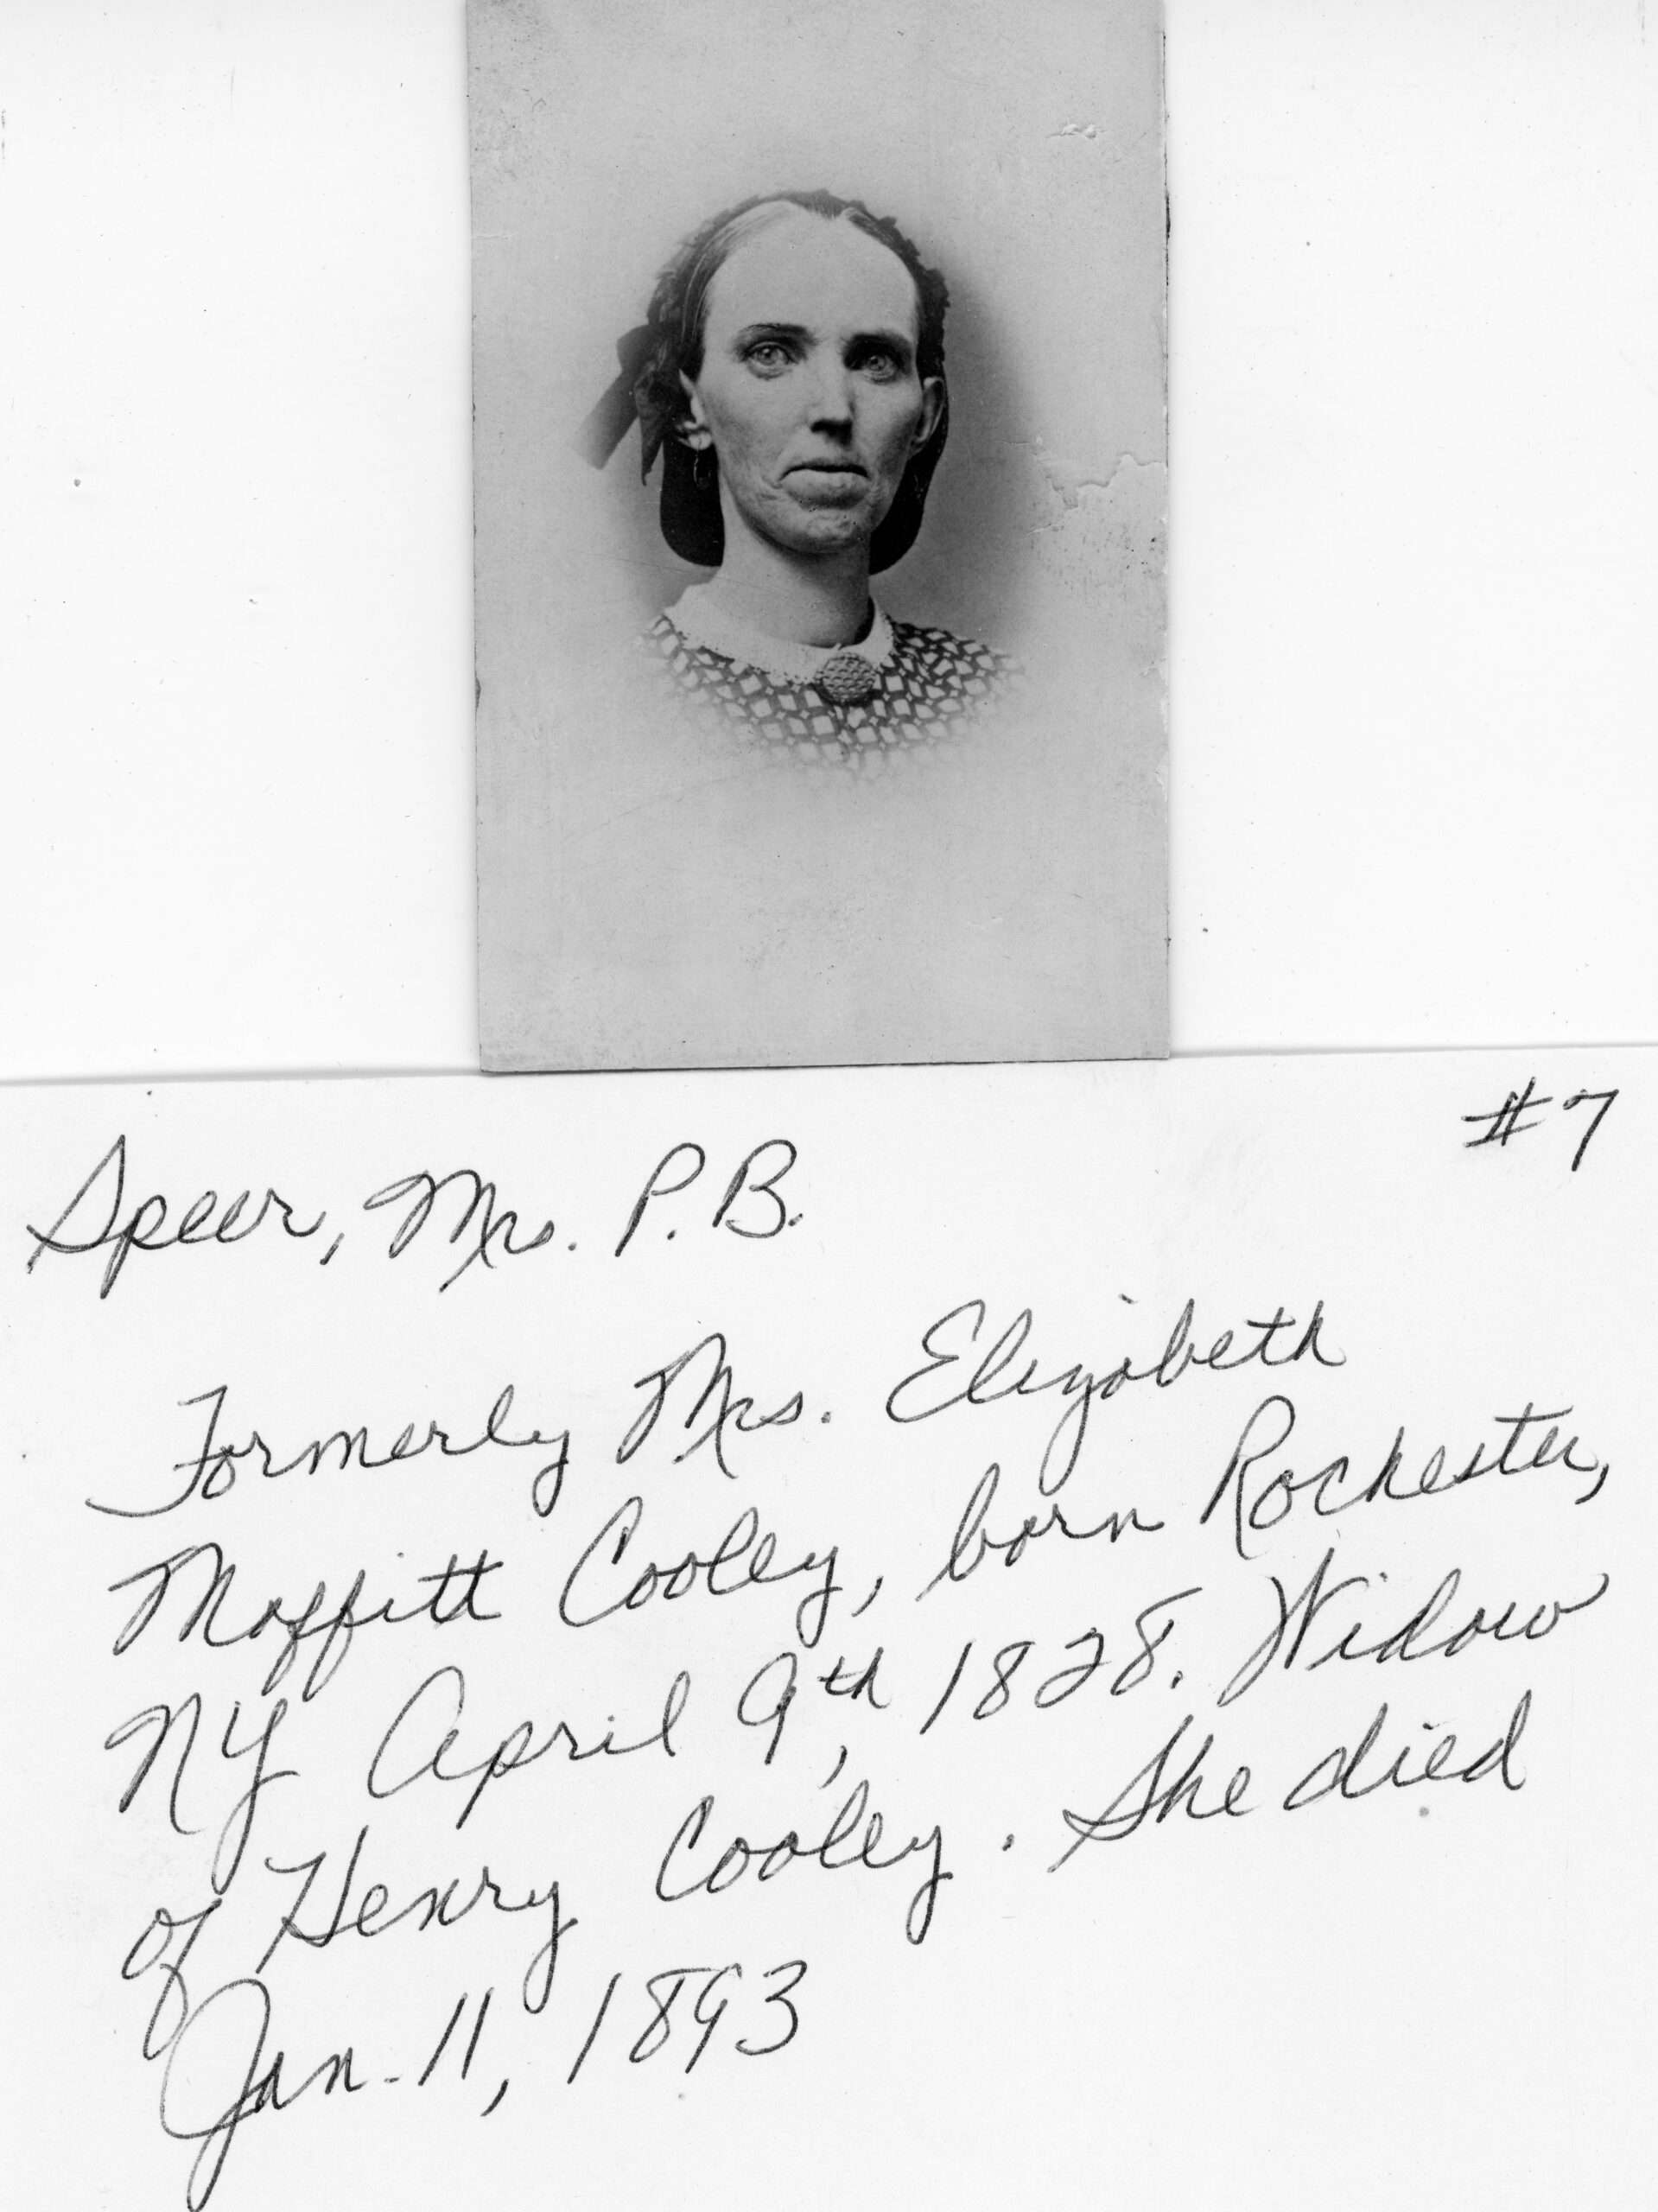 #7
Speer, Mrs. P.B.
Formerly Mrs. Elizabeth
Moffitt Cooley, born Rochester,
NY April 9th, 1828. Widow
of Henry Cooley. She died
Jan. 11, 1893